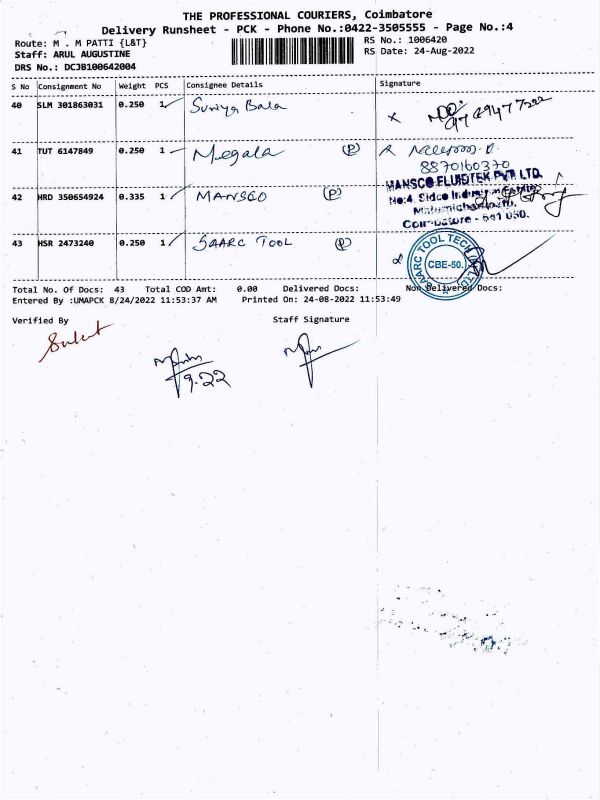 THE PROFESSIONAL COURIERS, Coimbatore
Delivery Runsheet - PCK - Phone No.:0422-3505555 - Page No.:4
Route: M . M PATTI {L&T} RS No.: 1006420
Staff: ARUL AUGUSTINE RS Date: 24-Aug-2022
DRS No.: DCJB100642004
S No Consignment No Weight PCS Consignee Details Signature
40 SLM 301863031 0.250 1 Suriya Bala
41 TUT 6147849 0.250 1 Megala (P)
8870160370
42 HRD 350654924 0.335 1 MANSCO (P)
MANSCO FLUIDTEK PVT. LTD.
No:4, Sidco
Coimbatore - 641 050.
43 HSR 2473240 0.250 1 SAARC TOOL (P)
SAARC TOOL TECH
CBE-50.
Total No. Of Docs: 43 Total COD Amt: 0.00 Delivered Docs: Non Delivered Docs:
Entered By :UMAPCK 8/24/2022 11:53:37 AM Printed On: 24-08-2022 11:53:49
Verified By Staff Signature